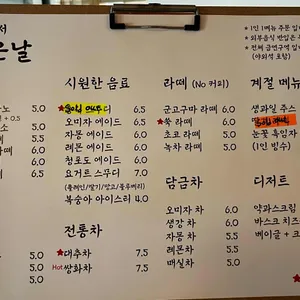 서
은날
* 1인 1메뉴 주문
* 외부음식 반입은
* 전체 금연구역 입
(야외석 포함)
시원한 음료
6.5
오미자 에이드 6.5
자몽 에이드 6.0
레몬 에이드 6.0
청포도 에이드 6.0
요거트 스무디 7.5
(플레인/딸기/망고/블루베리)
복숭아 아이스티 4.0
전통차
★대추차 7.5
Hot 쌍화차 7.5
라떼 (No 커피)
군고구마 라떼 6.0
★쑥 라떼 6.0
초코 라떼 5.0
녹차 라떼 5.0
담금차
오미자 차 6.0
생강 차 6.0
자몽 차 5.5
레몬 차 5.0
매실차 5.0
계절 메뉴
생과일 주스
눈꽃 흑임자
(1인 빙수)
디저트
약과스크림
바스크 치즈
베이글 + 크
노 5.0
+ 0.5
소 5.0
5.0
떼 5.5
5.5
6.0
6.0
5.0
5.0
5.0